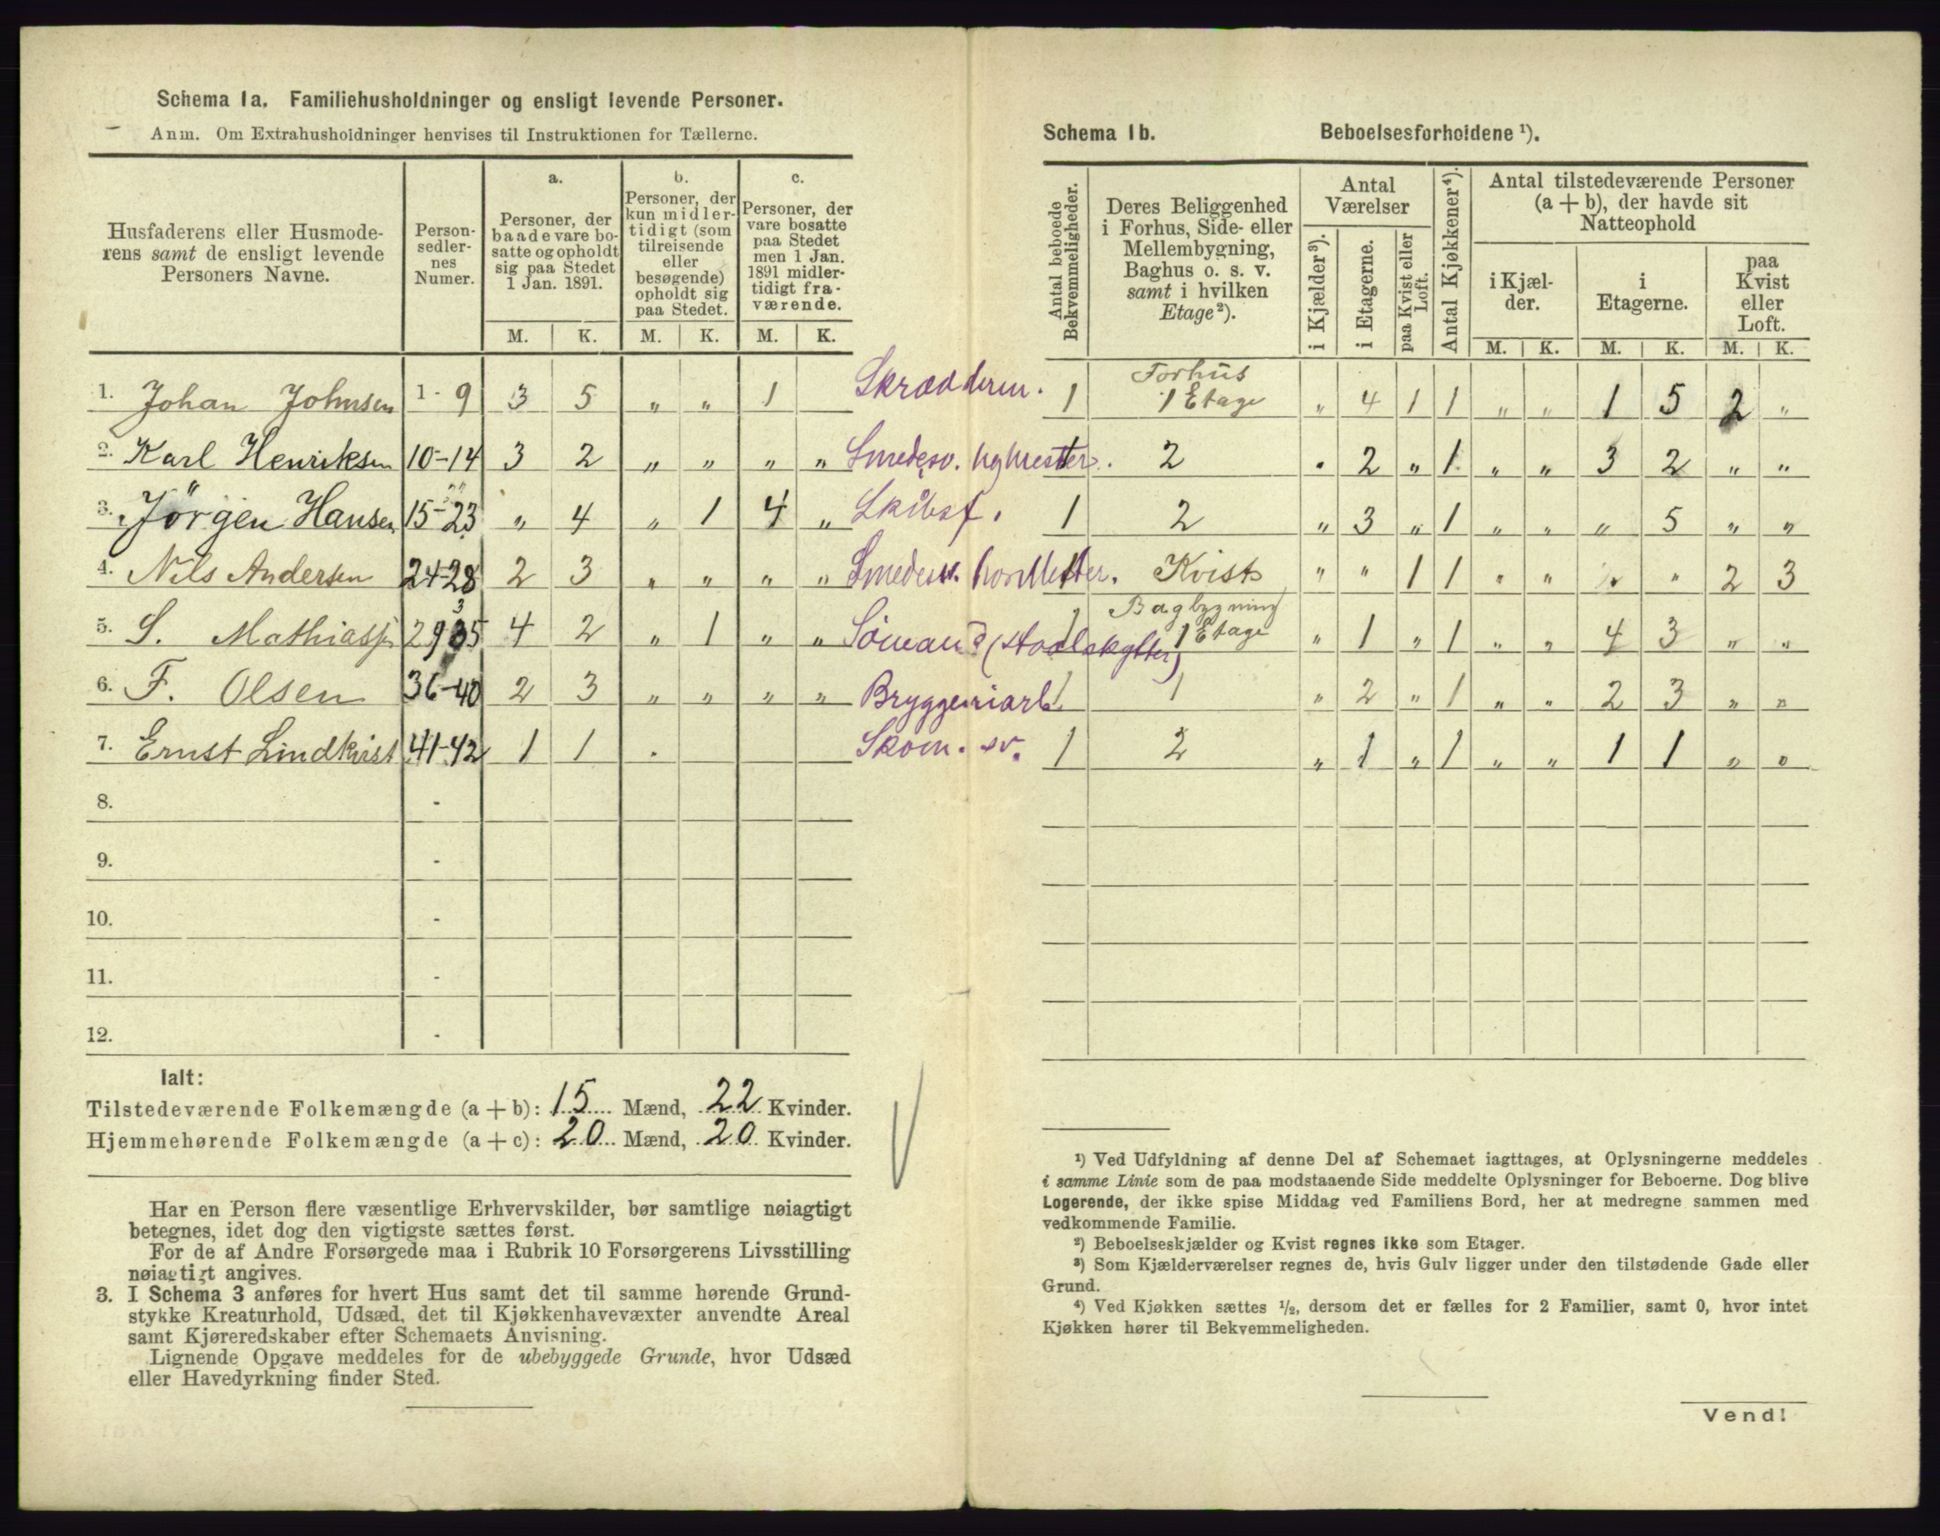 Schema 1a. Familiehusholdninger og ensligt levende Personer.
Anm. Om Extrahusholdninger henvises til Instruktionen for Tællerne.
Husfaderens eller Husmode-
rens samt de ensligt levende
Personers Navne.
Person-
sedler-
nes
Numer.
a.
Personer, der
baade vare bo-
satte og opholdt
sig paa Stedet
1 Jan. 1891.
b.
Personer, der
kun midler-
tidigt (som
tilreisende
eller
besøgende)
opholdt sig
paa Stedet.
c.
Personer, der
vare bosatte
paa Stedet
men 1 Jan.
1891 midler-
tidigt fra-
værende.
M. K. M. K. M. K.
1. Johan Johnsen 1-9 3 5 " " 1 Skrædderm.
2. Karl Henriksen 10-14 3 2 " " " " Smedesv.
3. Jörgen Hansen 15-23 " 4 " 1 4 " Skibsf.
4. Nils Andersen 24-28 2 3 " " " " Smedesv.
5. S. Mathias 29-35 4 2 " 1 " " Sömand (Staalskytter)
6. F. Olsen 36-40 2 3 " " " " Bryggeriarb.
7. Ernst Lindkvist 41-42 1 1 . Skom. sv.
8. -
9. -
10. -
11. -
12. -
Ialt:
Tilstedeværende Folkemængde (a + b): 15 Mænd, 22 Kvinder.
Hjemmehørende Folkemængde (a + c): 20 Mænd, 20 Kvinder.
Har en Person flere væsentlige Erhvervskilder, bør samtlige nøiagtigt
betegnes, idet dog den vigtigste sættes først.
For de af Andre Forsørgede maa i Rubrik 10 Forsørgerens Livsstilling
nøiagtigt angives.
3. I Schema 3 anføres for hvert Hus samt det til samme hørende Grund-
stykke Kreaturhold, Udsæd, det til Kjøkkenhavevæxter anvendte Areal
samt Kjøreredskaber efter Schemaets Anvisning.
Lignende Opgave meddeles for de ubebyggede Grunde, hvor Udsæd
eller Havedyrkning finder Sted.
Schema 1b. Beboelsesforholdene ¹).
Antal beboede
Bekvemmeligheder.
Deres Beliggenhed
i Forhus, Side- eller
Mellembygning,
Baghus o. s. v.
samt i hvilken
Etage²).
Antal
Værelser
i Kjælder³).
i Etagerne.
paa Kvist eller
Loft.
Antal Kjøkkener⁴).
Antal tilstedeværende Personer
(a + b), der havde sit
Natteophold
i Kjæl-
der.
i
Etagerne.
paa
Kvist
eller
Loft.
M. K. M. K. M. K.
1 Forhus
1 Etage " 4 1 1 " " 1 5 2 "
2 . 2 " 1 " " 3 2 " "
1 2 " 3 " 1 " " " 5 " "
1 Kvist " " 1 1 " " " " 2 3
1 Bagbygning
1 Etage " 1 " 1 " " 4 3 " "
1 1 " 2 " 1 " " 2 3 " "
1 2 " 1 " 1 " " 1 1 " "
¹) Ved Udfyldning af denne Del af Schemaet iagttages, at Oplysningerne meddeles
i samme Linie som de paa modstaaende Side meddelte Oplysninger for Beboerne. Dog blive
Logerende, der ikke spise Middag ved Familiens Bord, her at medregne sammen med
vedkommende Familie.
²) Beboelseskjælder og Kvist regnes ikke som Etager.
³) Som Kjælderværelser regnes de, hvis Gulv ligger under den tilstødende Gade eller
Grund.
⁴) Ved Kjøkken sættes ½, dersom det er fælles for 2 Familier, samt 0, hvor intet
Kjøkken hører til Bekvemmeligheden.
Vend!